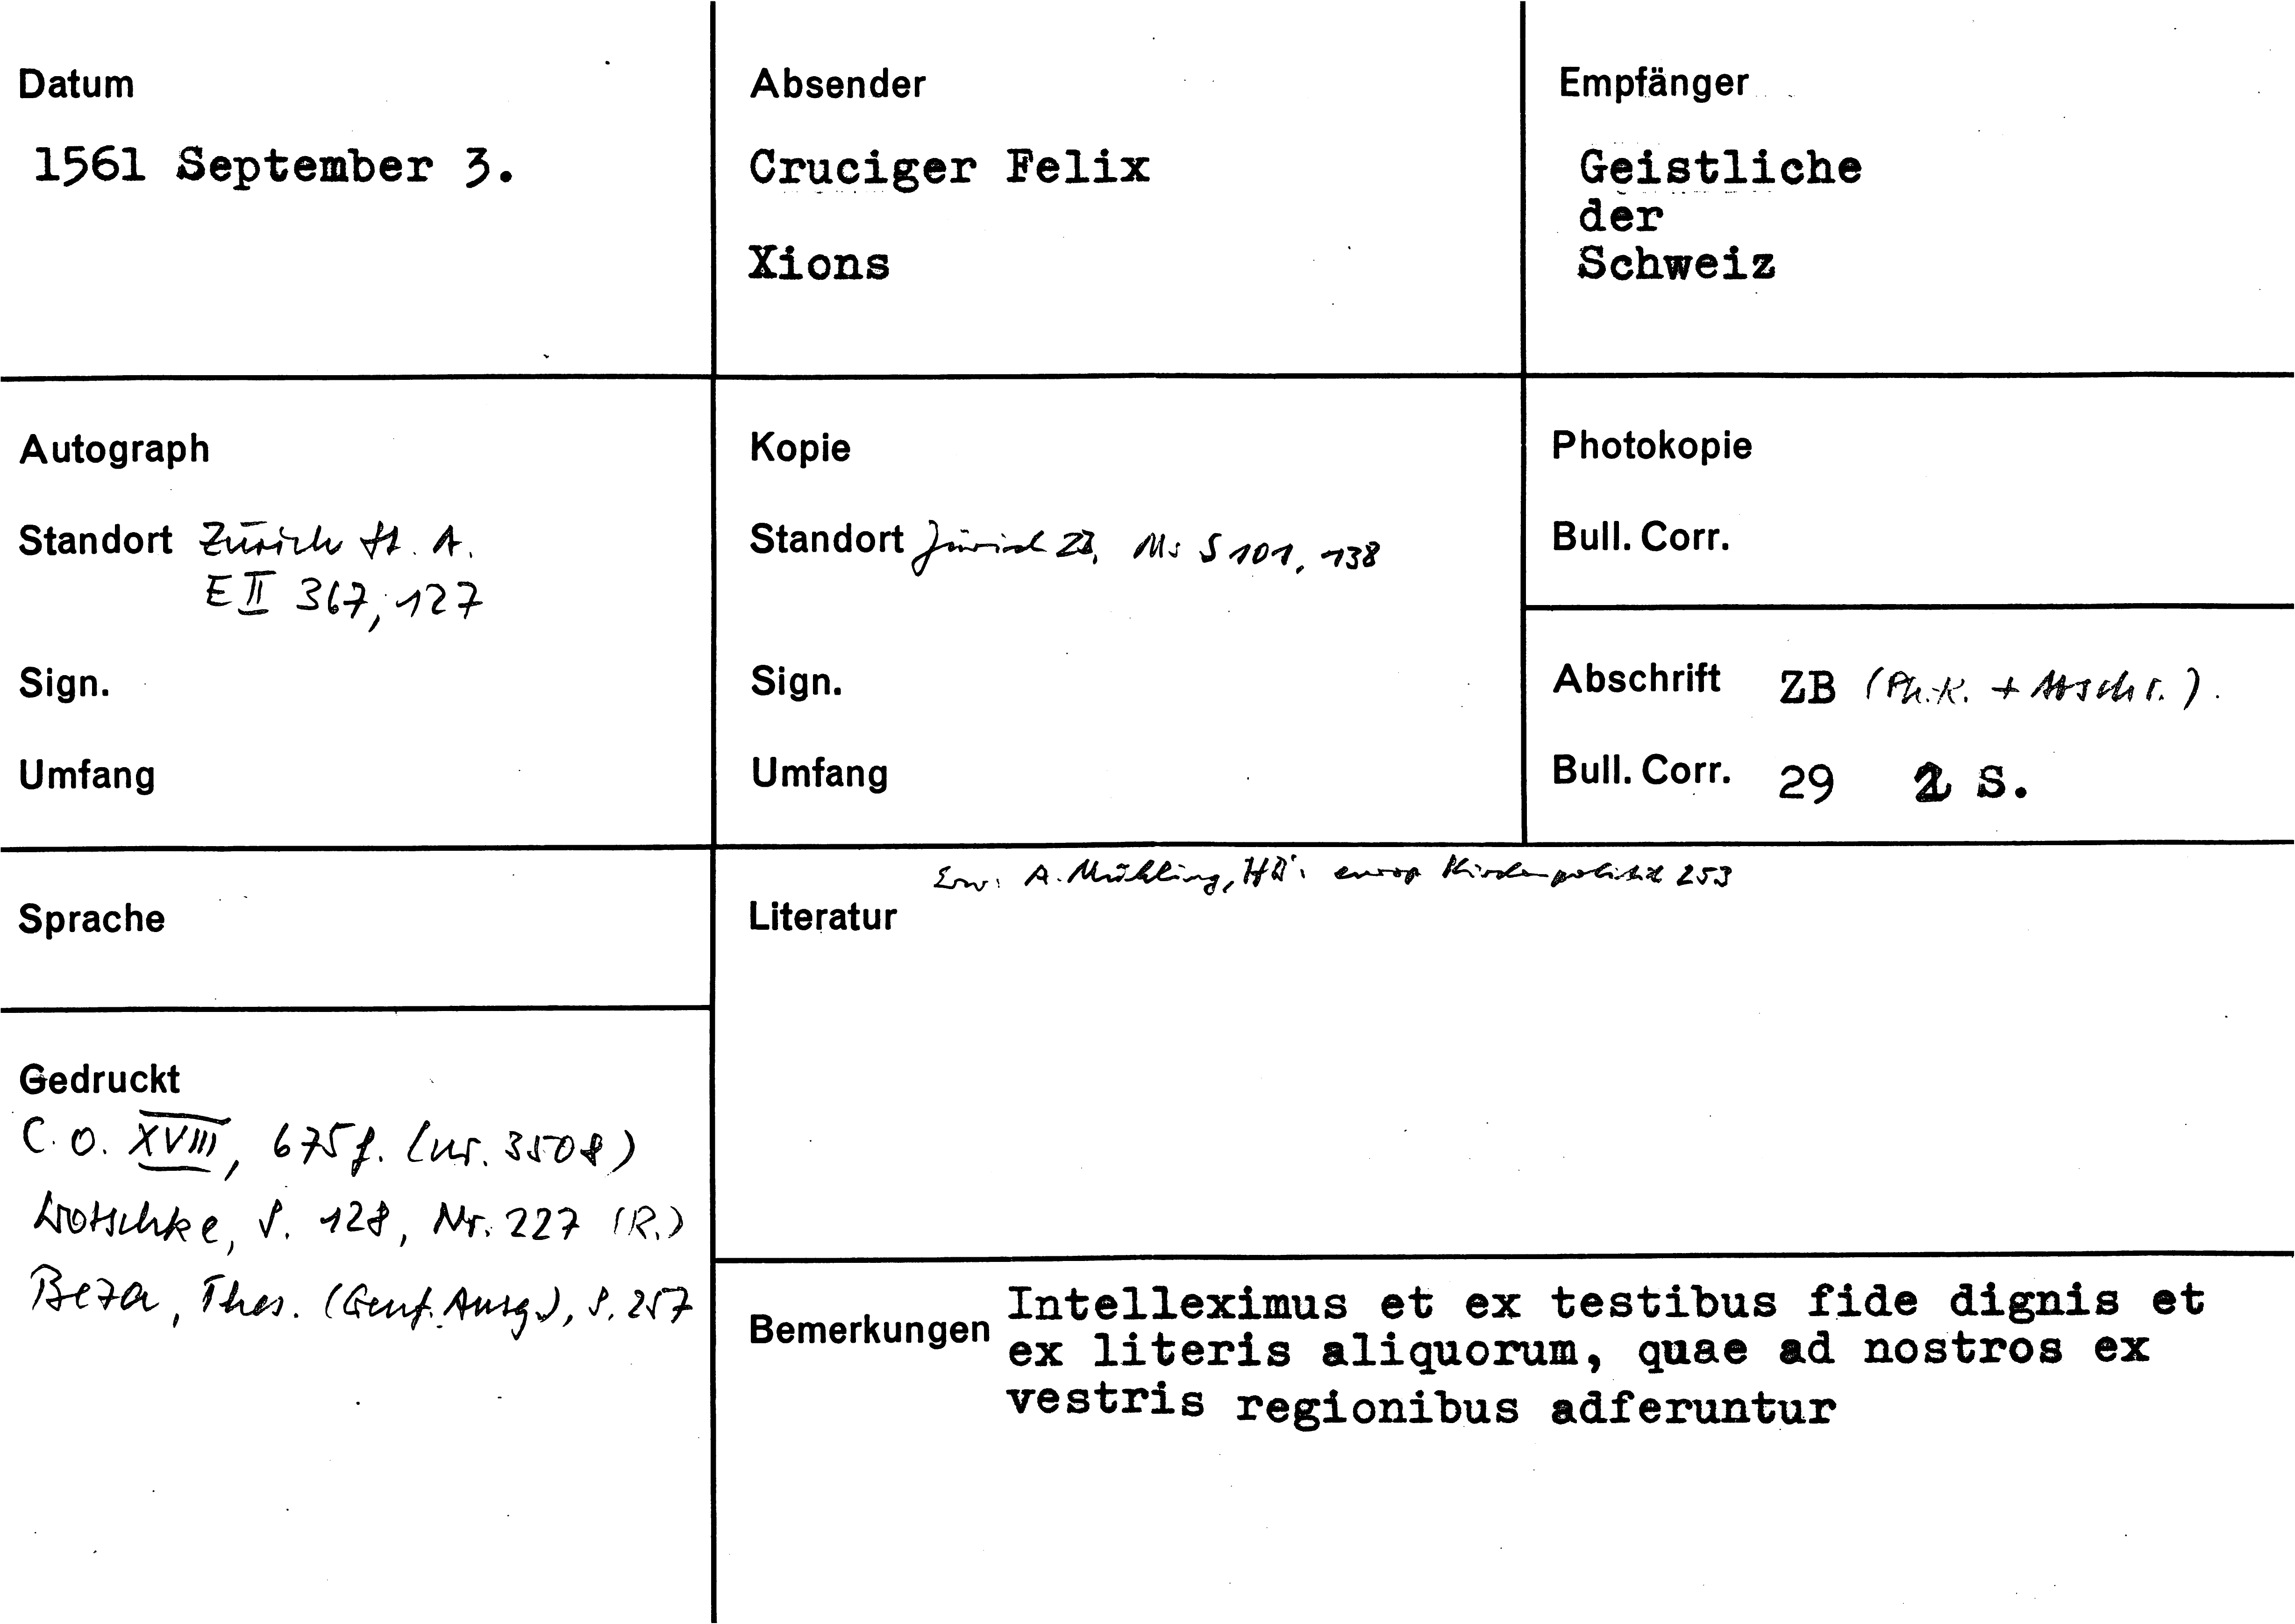 Datum
1561 September 3.
Absender
Cruciger Felix
Xions
Empfänger
Geistliche
der
Schweiz
Autograph
Standort Zürich St. A.
E II 367, 127
Sign.
Umfang
Kopie
Standort Zürich ZB, Ms S 101, 138
Sign.
Umfang
Photokopie
Bull. Corr.
Abschrift ZB (Ph.K. + Abschr.).
Bull. Corr. 29 2 S.
Sprache
Erw: A. Mühling, HB's europ Kirchenpolitik 253
Literatur
Gedruckt
C. O. XVIII, 675 f. (nr. 3508)
Wotschke, S. 128, Nr. 227 (R.)
Beza, Thes. (Genf. Ausg.), S. 257
Bemerkungen Intelleximus et ex testibus fide dignis et
ex literis aliquorum, quae ad nostros ex
vestris regionibus adferuntur